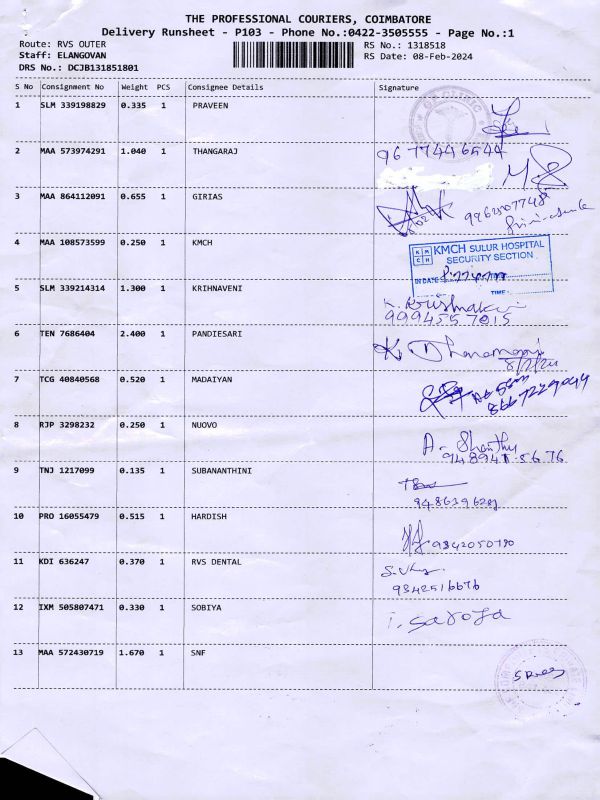 THE PROFESSIONAL COURIERS, COIMBATORE
Delivery Runsheet - P103 - Phone No.:0422-3505555 - Page No.:1
Route: RVS OUTER
RS No.: 1318518
Staff: ELANGOVAN
RS Date: 08-Feb-2024
DRS No.: DCJB131851801
S No Consignment No Weight PCS Consignee Details Signature
1 SLM 339198829 0.335 1 PRAVEEN
2 MAA 573974291 1.040 1 THANGARAJ 9677446544
3 MAA 864112091 0.655 1 GIRIAS
4 MAA 108573599 0.250 1 KMCH
KMCH SULUR HOSPITAL
SECURITY SECTION
IN DATE:
TIME:
5 SLM 339214314 1.300 1 KRIHNAVENI
9994557015
6 TEN 7686404 2.400 1 PANDIESARI
8/2/24
7 TCG 40840568 0.520 1 MADAIYAN
8667229044
8 RJP 3298232 0.250 1 NUOVO A. Shanthy
9 TNJ 1217099 0.135 1 SUBANANTHINI
10 PRO 16055479 0.515 1 HARDISH
11 KDI 636247 0.370 1 RVS DENTAL
9342516676
12 IXM 505807471 0.330 1 SOBIYA i. saroja
13 MAA 572430719 1.670 1 SNF